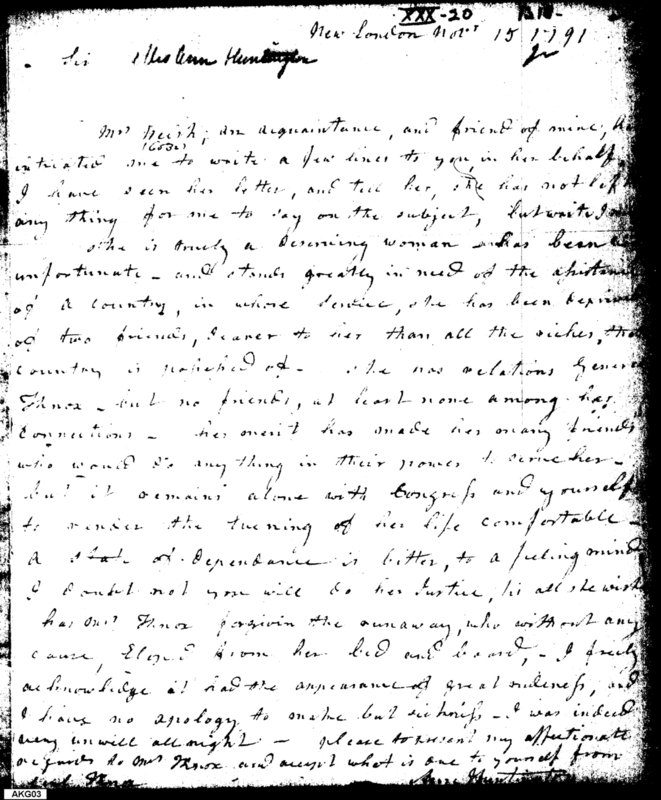 XXX-20
New London Novr 15 1791
Sir Miss Ann Huntington
Mrs an acquaintance, and friend of mine, ha
intreated me to write a few lines to you, in her behalf,
I have seen her letter, and tell her, she has not left
any thing for me to say on the subject, but write I
she is truely a deserving woman has been
unfortunate - and stands greatly in need of the assistance
of a country, in whose service, she has been deprived
of two friends, dearer to her than all the riches, that
country is possessed of - she has relations General
Knox - but no friends, at least none among her
connections - her merit has made her many friends
who would do any thing in their power to serve her -
but it remains alone with Congress and yourself
to render the Evening of her life comfortable -
a state of dependance is bitter, to a feeling mind
I doubt not you will do her Justice, tis all she wish
has Mrs Knox forgivin the runaway, who without any
cause, Eloped from her bed and board, - I freely
acknowledge it had the appearance of great rudeness, and
I have no apology to make but sickness - I was indeed
very unwell all night - please to present my affectionate
regards to Mrs Knox and accept what is due to yourself from
Knox Anne Huntington
AKG03